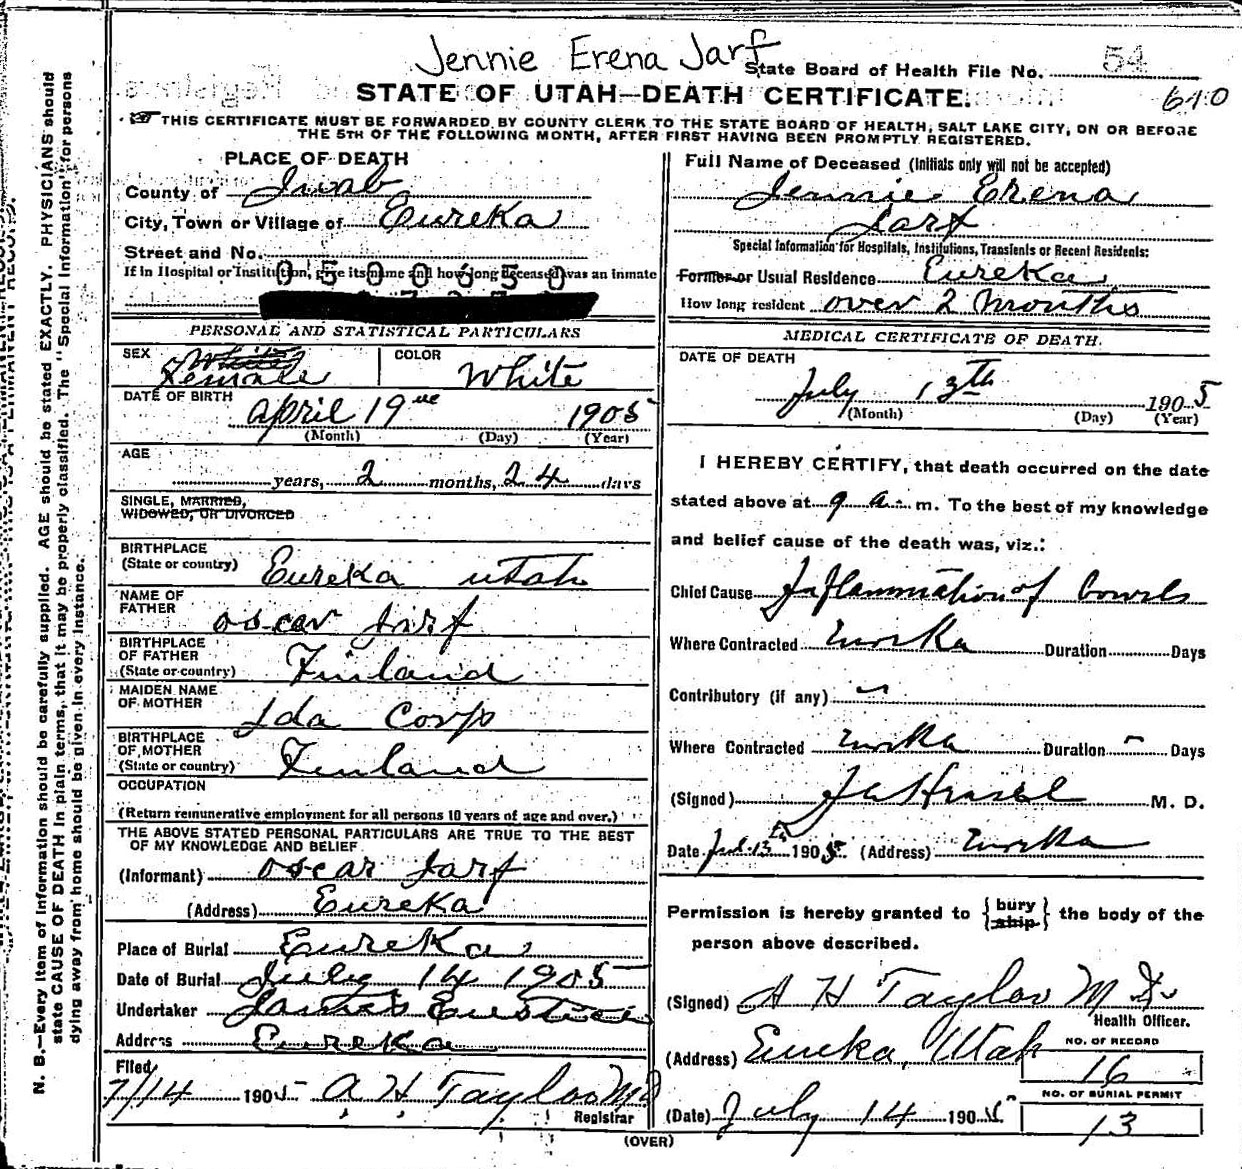 Jennie Erena Jarf
State Board of Health File No. 54
STATE OF UTAH—DEATH CERTIFICATE.
610
THIS CERTIFICATE MUST BE FORWARDED BY COUNTY CLERK TO THE STATE BOARD OF HEALTH, SALT LAKE CITY, ON OR BEFORE
THE 5TH OF THE FOLLOWING MONTH, AFTER FIRST HAVING BEEN PROMPTLY REGISTERED.
N. B.—Every item of information should be carefully supplied. AGE should be stated EXACTLY. PHYSICIANS should
state CAUSE OF DEATH in plain terms, that it may be properly classified. The "Special Information" for persons
dying away from home should be given in every instance.
PLACE OF DEATH
County of Juab
City, Town or Village of Eureka
Street and No.
If in Hospital or Institution, give its name and how long deceased was an inmate
0500650
PERSONAL AND STATISTICAL PARTICULARS
SEX White Female
COLOR White
DATE OF BIRTH
April 19 1905
(Month) (Day) (Year)
AGE
years, 2 months, 24 days
SINGLE, MARRIED,
WIDOWED, OR DIVORCED
BIRTHPLACE
(State or country) Eureka Utah
NAME OF
FATHER Oscar Jarf
BIRTHPLACE
OF FATHER
(State or country) Finland
MAIDEN NAME
OF MOTHER Ida Corp
BIRTHPLACE
OF MOTHER
(State or country) Finland
OCCUPATION
(Return remunerative employment for all persons 10 years of age and over.)
THE ABOVE STATED PERSONAL PARTICULARS ARE TRUE TO THE BEST
OF MY KNOWLEDGE AND BELIEF
(Informant) Oscar Jarf
(Address) Eureka
Place of Burial Eureka
Date of Burial July 14 1905
Undertaker
Address Eureka
Filed
7/14 1905 A H Taylor MD
Registrar
Full Name of Deceased (Initials only will not be accepted)
Jennie Erena
Jarf
Special Information for Hospitals, Institutions, Transients or Recent Residents:
Former or Usual Residence Eureka
How long resident over 2 months
MEDICAL CERTIFICATE OF DEATH.
DATE OF DEATH
July 13th 1905
(Month) (Day) (Year)
I HEREBY CERTIFY, that death occurred on the date
stated above at 9 a. m. To the best of my knowledge
and belief cause of the death was, viz.:
Chief Cause Inflammation of bowels
Where Contracted Eureka Duration Days
Contributory (if any) —
Where Contracted Eureka Duration — Days
(Signed) M. D.
Date Jul 13 1905. (Address) Eureka
Permission is hereby granted to {bury ship} the body of the
person above described.
(Signed) A H Taylor M D.
Health Officer.
(Address) Eureka, Utah
NO. OF RECORD
16
NO. OF BURIAL PERMIT
13
(Date) July 14 1905.
(OVER)